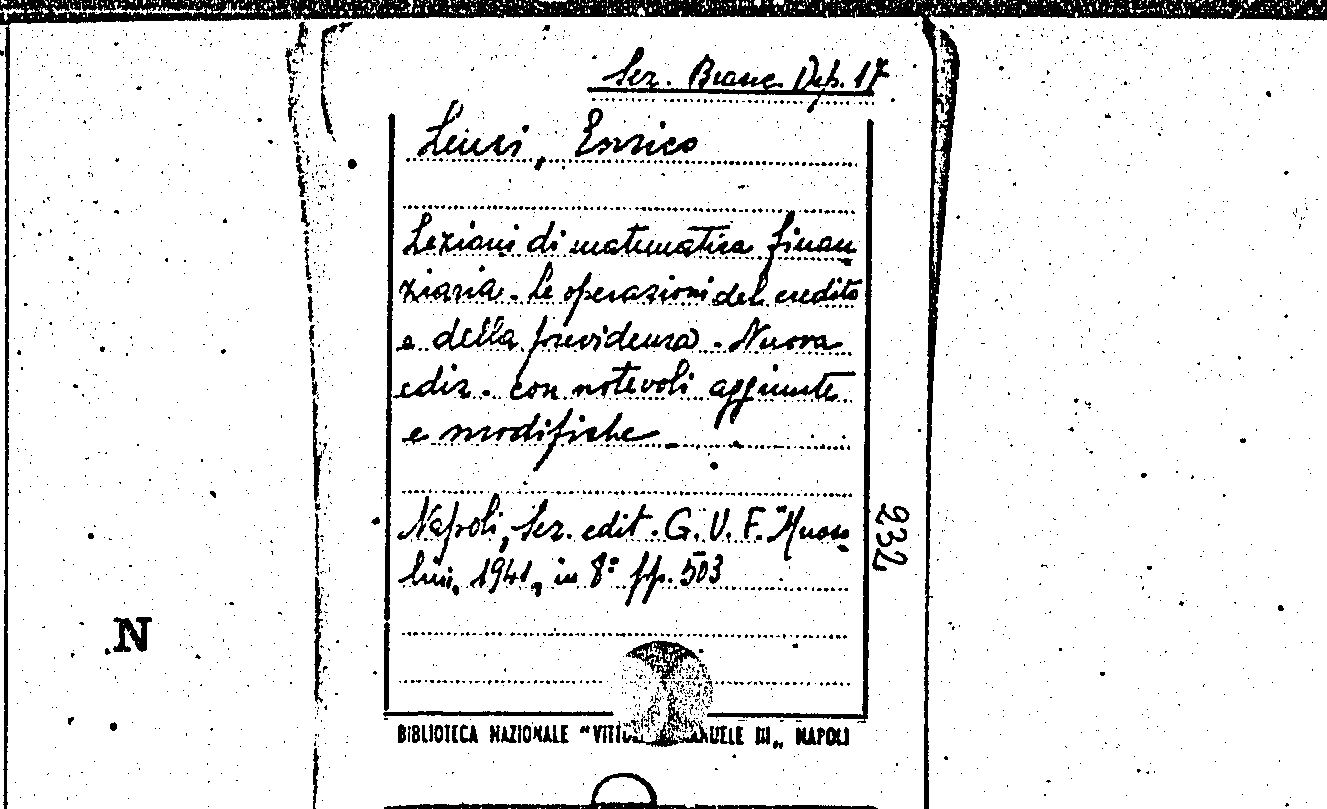 Sez. Branc. Dep. 17
Lenzi, Enrico
Lezioni di matematica finan
ziaria. Le operazioni del credito
e della previdenza. Nuova
ediz. con notevoli aggiunte
e modifiche.
Napoli, Sez. edit. G. U. F. "Musso
lini, 1941, in 8° pp. 503
932
N
BIBLIOTECA NAZIONALE "VITTO MANUELE III„ NAPOLI